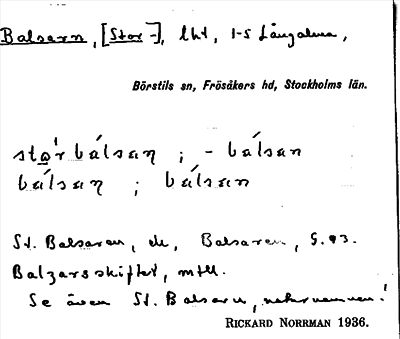 Balsarn, [Stor-], lht, 1-5 Långalma,
Börstils sn, Frösåkers hd, Stockholms län.
stǫ́r bálsaɳ ; - bálsan
bálsaɳ ; bálsan
St. Balsaren, de, Balsaren, G. 93.
Balzarsskiftet, mtll.
Se även St. Balsarn, naturnamnen!
RICKARD NORRMAN 1936.